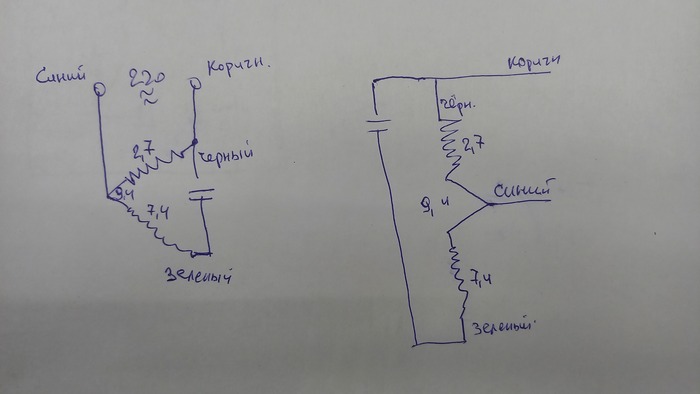 Синий
220
~
~
Коричн.
2,7
черный
9,4
7,4
Зеленый
Коричн
чёрн.
2,7
Синий
9,4
7,4
Зеленый.